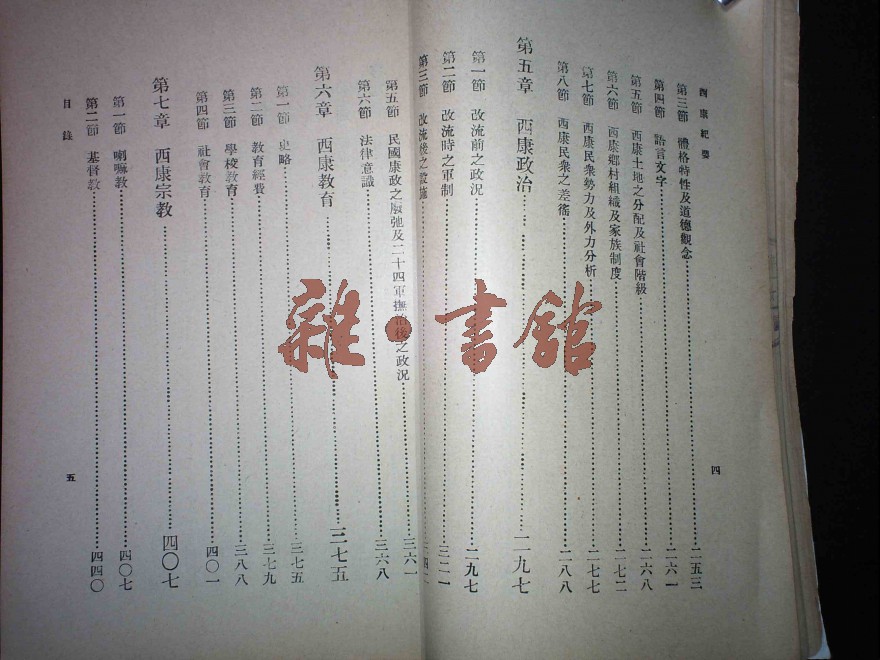 西康紀要
第三節 體格特性及道德觀念……二五三
第四節 語言文字……二六一
第五節 西康土地之分配及社會階級……二六八
第六節 西康鄉村組織及家族制度……二七二
第七節 西康民衆勢力及外力分析……二七七
第八節 西康民衆之差徭……二八八
第五章 西康政治……二九七
第一節 改流前之政況……二九七
第二節 改流時之軍制……三二一
第三節 改流後之設施
四
第五節 民國康政之廢弛及二十四軍撫治後之政況……三六一
第六節 法律意識……三六八
第六章 西康教育……三七五
第一節 史略……三七五
第二節 教育經費……三七九
第三節 學校教育……三八八
第四節 社會教育……四〇一
第七章 西康宗教……四〇七
第一節 喇嘛教……四〇七
第二節 基督教……四四〇
目錄
五
雜·書館